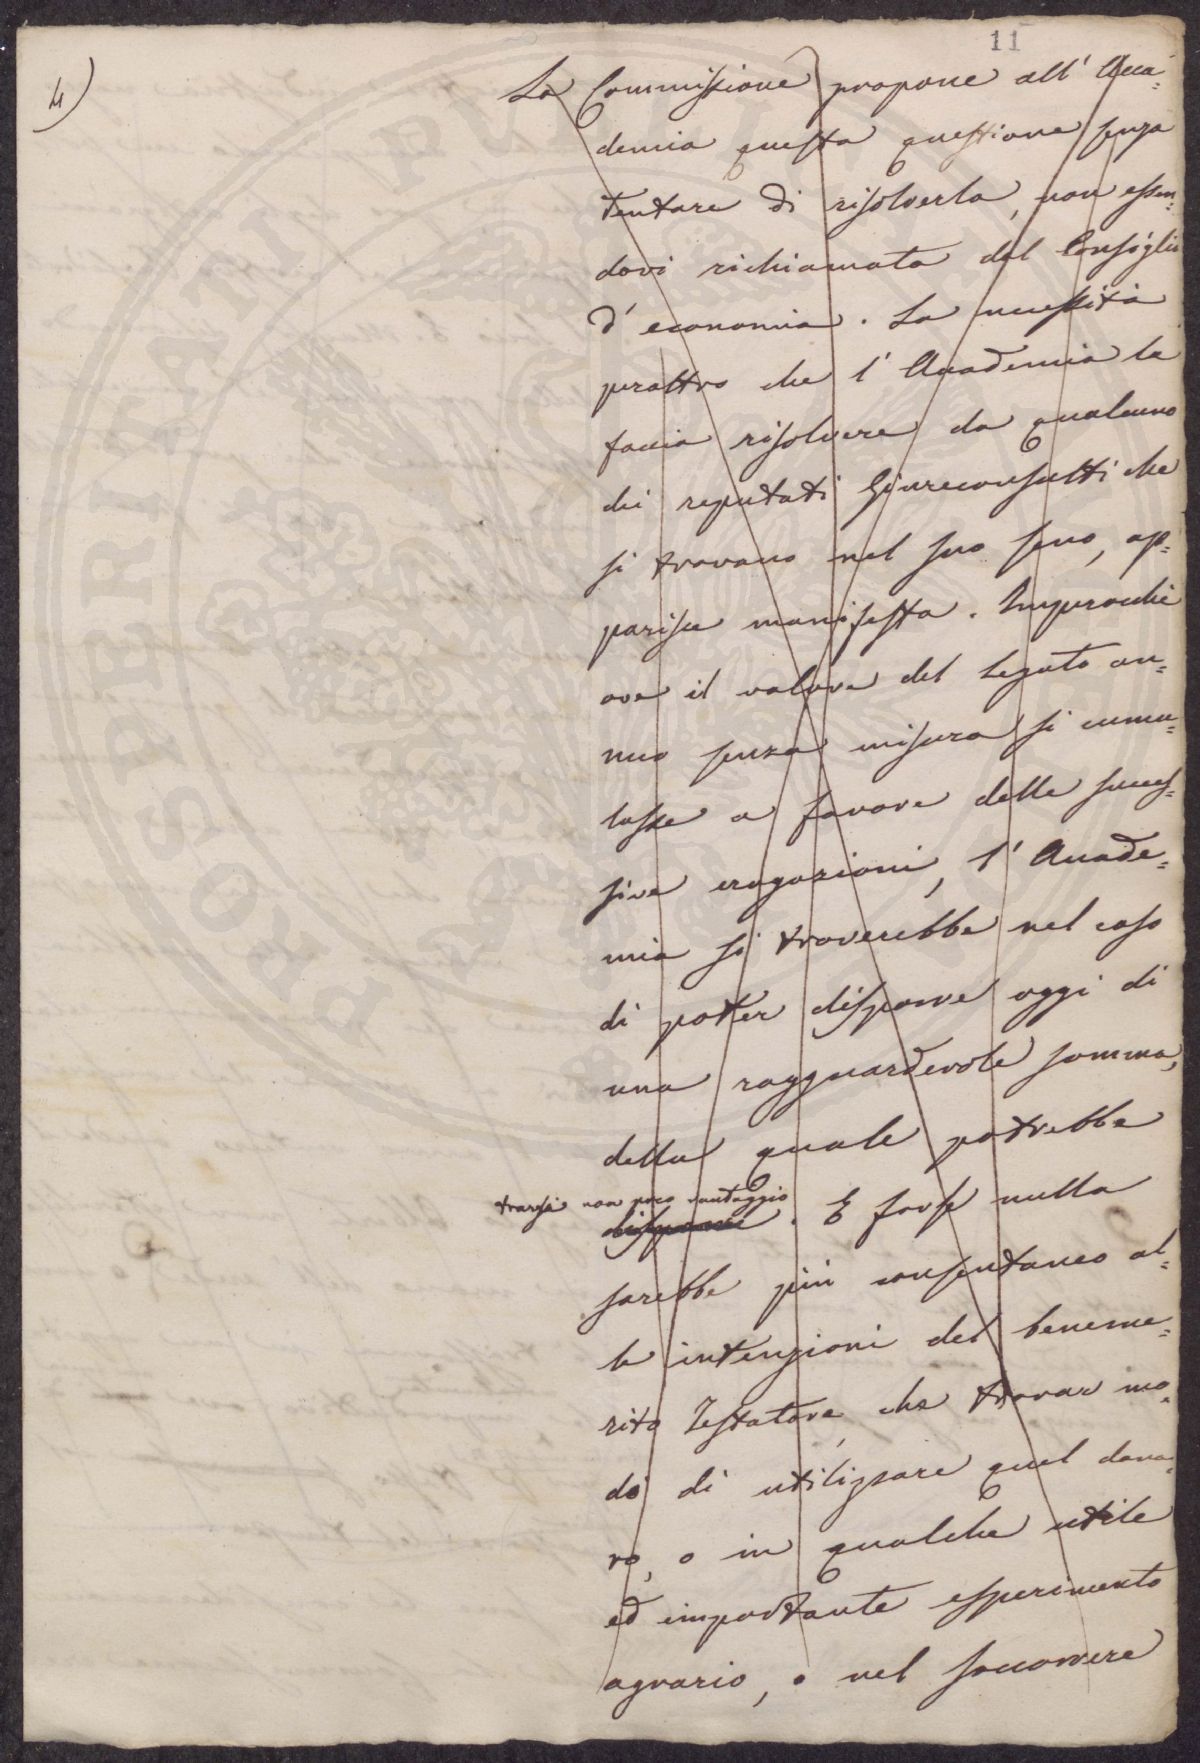 11
4)
La Commissione propone all' Acca=
demia questa questione senza
tentare di risolverla, non essen=
dovi richiamata dal Consiglio
d' economia. La necessità
peraltro che l' Accademia la
faccia risolvere da qualcuno
dei reputati Giureconsulti che
si trovano nel suo seno, ap=
parisce manifesta. Imperocchè
ove il valore del Legato an=
nuo senza misura si cumu=
lasse a favore delle succes=
sive erogazioni, l' Accade=
mia si troverebbe nel caso
di poter disporre oggi di
una ragguardevole somma,
della quale potrebbe
trarsi non poco vantaggio
disporre. E forse nulla
sarebbe più consentaneo al=
le intenzioni del beneme=
rito Testatore, che trovar mo=
do di utilizzare quel dana=
ro, o in qualche utile
ed importante esperimento
agrario, o nel soccorrere
PROSPERITATI PVBLICAE